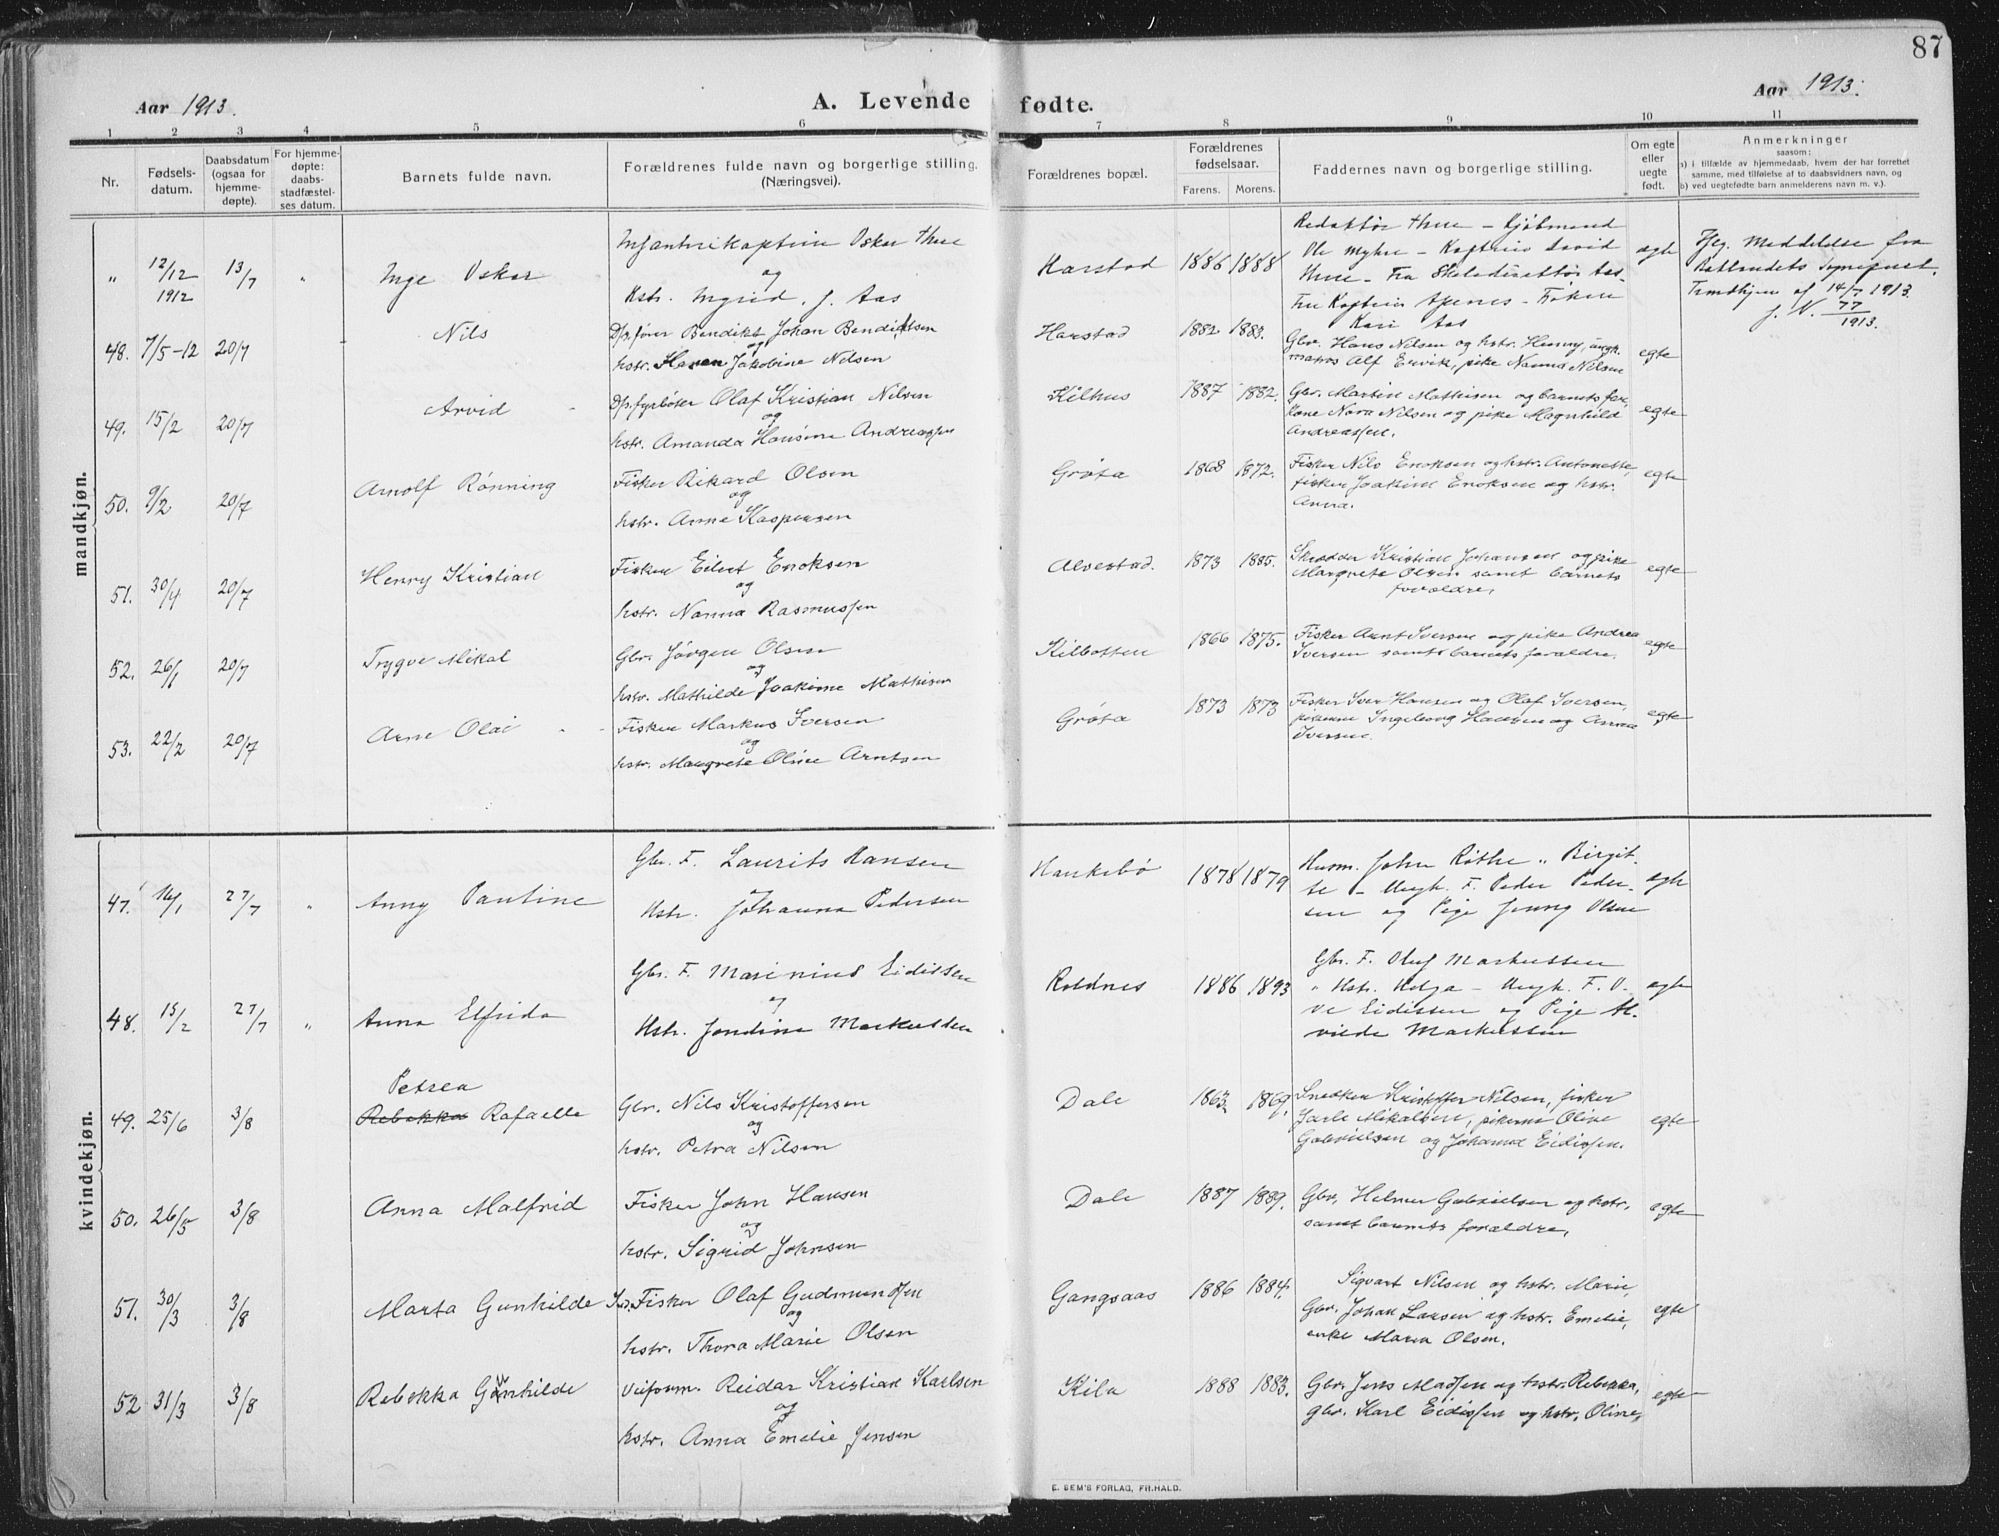 87
Aar 1913.
A. Levende fødte.
Aar 1913.
1 2 3 4 5 6 7 8 9 10 11
Nr.
Fødsels-
datum.
Daabsdatum
(ogsaa for
hjemme-
døpte).
For hjemme-
døpte:
daabs-
stadfæstel-
ses datum.
Barnets fulde navn.
Forældrenes fulde navn og borgerlige stilling.
(Næringsvei).
Forældrenes bopæl.
Forældrenes
fødselsaar.
Farens. Morens.
Faddernes navn og borgerlige stilling.
Om egte
eller
uegte
født.
Anmerkninger
saasom:
a) i tilfælde av hjemmedaab, hvem der har forrettet
samme, med tilføielse af to daabsvidners navn, og
b) ved uegtefødte barn anmelderens navn m. v.).
mandkjøn.
" 12/12 1912 13/7 " Inge Oskar
Infanterikaptein Oskar Thue
og
Hstr. Ingrid, f. Aas
Harstad 1886 1888
Redaktør Thue – Kjøbmand
Ole Myhre – Kaptein David
Thue – Fru Skoledirektør Aas –
Fru Kaptein Apenes – Frøken
Kari Aas
egte
Meddelelse fra
14/7 1913.
J. N. 77/1913.
48. 7/5-12 20/7 Nils
Dp.fører Bendikt Johan Bendiktsen
og
hstr. Haren Jakobine Nilsen
Harstad 1882 1883.
Gbr. Hans Nilsen og hstr. Henny, ungk.
matros Alf Ervik, pike Nanna Nilsen
egte
49. 15/2 20/7 Arvid
Dp.fyrbøter Olaf Kristian Nilsen
og
hstr. Amanda Hansine Andreassen
Kilhus 1887 1882.
Gbr. Martin Mathisen og barnets far,
kone Nora Nilsen og pike Magnhild
Andreassen.
egte
50. 9/2 20/7 Arnolf Rønning
Fisker Rikard Olsen
og
hstr. Anne Kaspersen
Grøta 1868 1872.
Fisker Nils Enoksen og hstr. Antonette,
fisker Joakim Enoksen og hstr.
Anna.
egte
51. 30/4 20/7 Henry Kristian
Fisker Eilert Enoksen
og
hstr. Nanna Rasmussen
Alvestad. 1873 1885.
Skrædder Kristian Johansen og pike
Margrete Olsen samt barnets
forældre.
egte
52. 26/1 20/7 Trygve Mikal
Gbr. Jørgen Olsen
og
hstr. Mathilde Joakime Mathisen
Kilbotten 1866 1875.
Fisker Arnt Iversen og pike Andrea
Iversen samt barnets forældre.
egte
53. 22/2 20/7 Arne Olai
Fisker Markus Iversen
og
hstr. Margrete Oline Arntsen
Grøta 1873 1873
Fisker Iver Hansen og Olaf Iversen,
pikerne Ingeborg Hansen og Anna
Iversen.
egte
kvindekjøn.
47. 14/1 27/7 " Anny Pauline
Gbr. F. Laurits Hansen
og
Hstr. Johanna Pedersen
Haukebø 1878 1879
Husm. John Røthe " Birgit-
te – Ungk. F. Peder Peder-
sen og Pige Jenny Olsen
egte
48. 15/2 27/7 " Anna Elfrida
Gbr. F. Marinius Eidissen
og
Hstr. Jondine Markussen
Roldnes 1886 1893
Gbr. F. Oluf Markussen
" Hstr. Helga – Ungk. F. O-
ve Eidissen og Pige Al-
vilde Markussen
egte
49. 25/6 3/8 Petrea
Rebekka Rafaelle
Gbr. Nils Kristoffersen
og
hstr. Petra Nilsen
Dale 1863. 1869.
Snedker Kristoffer Nilsen, fisker
Jarle Mikalsen, pikerne Olive
Gabrielsen og Johanna Eidissen.
egte
50. 26/5 3/8 Anna Malfrid
Fisker John Hansen
og
hstr. Sigrid Johnsen
Dale 1887 1889.
Gbr. Helmer Gabrielsen og hstr.
samt barnets forældre.
egte
51. 30/3 3/8 Marta Gunhilde
Fisker Olaf Gudmundsen
og
hstr. Thora Marie Olsen
Gangsaas 1886 1884.
Sigvart Nilsen og hstr. Marie,
Gbr. Johan Larsen og hstr. Emelie,
enke Maren Olsen.
egte
52 31/3 3/8 Rebekka Gunhilde
Reidar Kristian Karlsen
og
hstr. Anna Emelie Jensen
Kila 1888 1883.
Gbr. Jens Madsen og hstr. Rebekka,
gbr. Karl Eidissen og hstr. Oline,
egte
E. SEM'S FORLAG, FR.HALD.